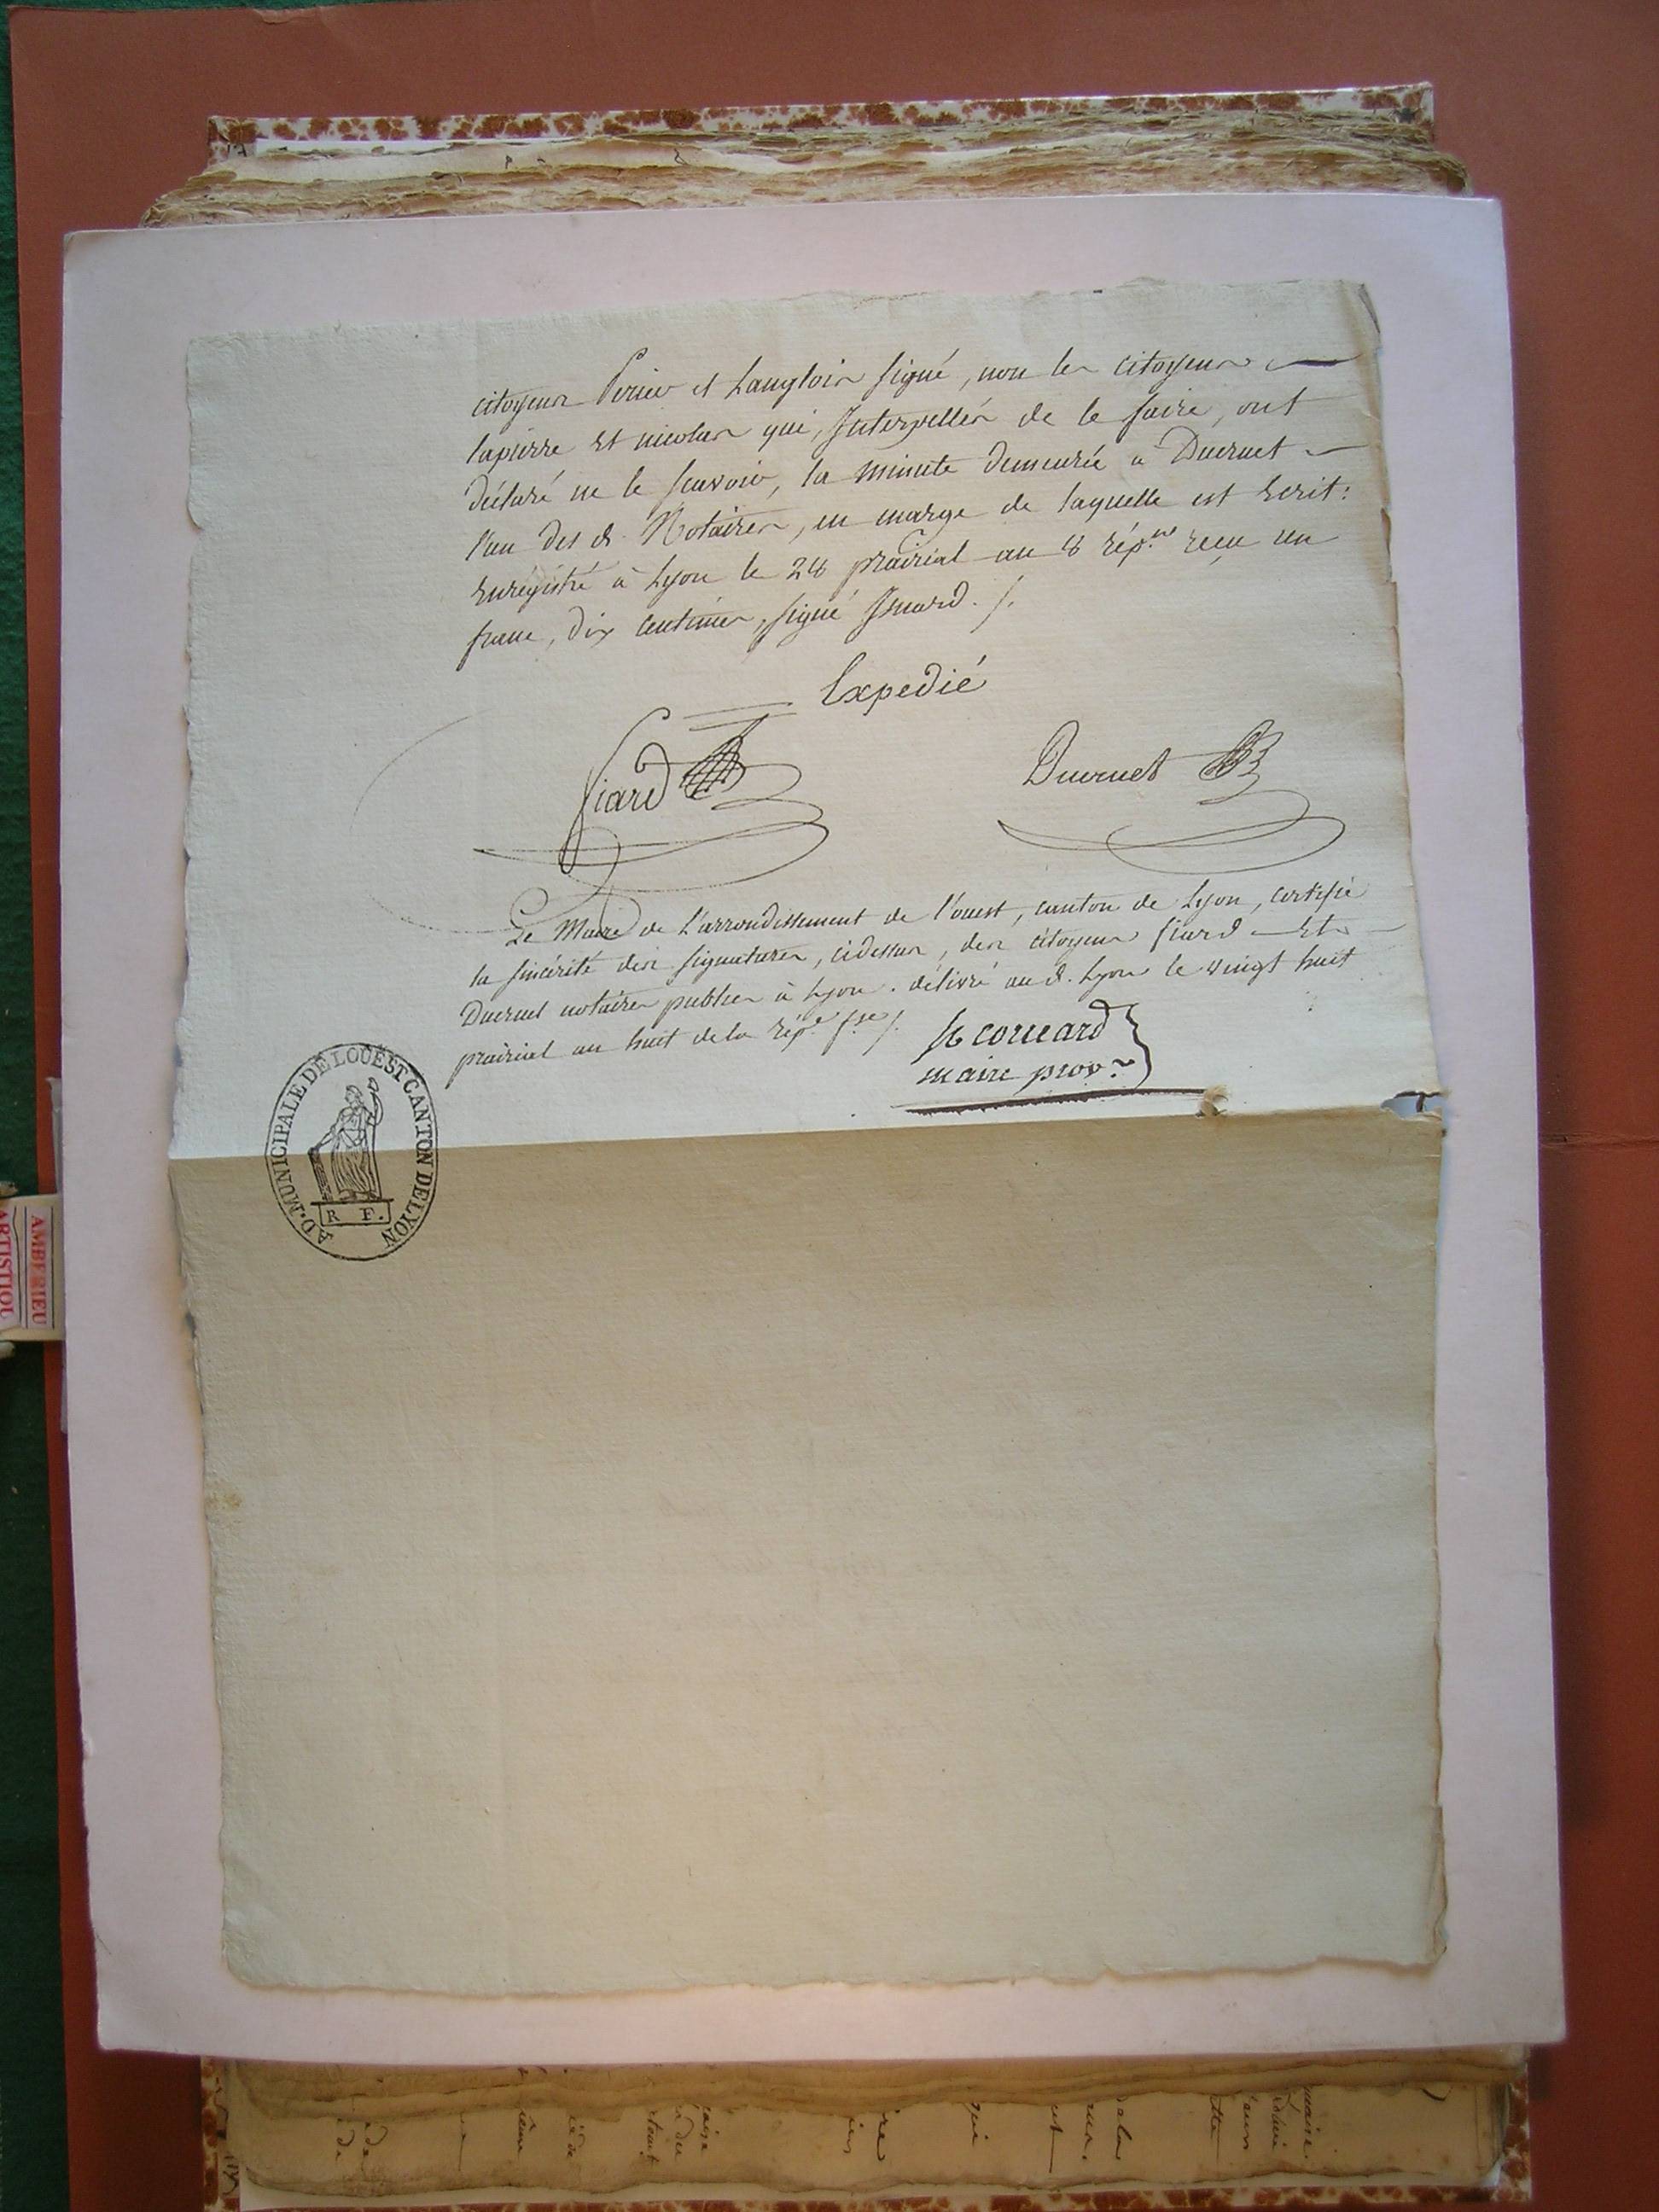 citoyens Perier et Langlois signé, non les citoyens
lapierre et nicolas qui, Interpellés de le faire, ont
déclaré ne le scavoir, la minute demeurée à Ducruet
l'un des d. Notaires, en marge de laquelle est Ecrit:
Enregistré à Lyon le 28 prairial an 8 rép.ne reçu un
franc, dix centimes, signé Isnard. /.
Expedié
fiard
Ducruet
Le Maire de L'arrondissement de l'ouest, canton de Lyon, certifie
la sincérité des signatures, cidessus, des citoyens fiard Et
Ducruet notaires publics à Lyon. délivré aud. Lyon le vingt huit
prairial an huit de la rép.e f.se /.
maire prov.re
AD. MUNICIPALE DE LOUEST CANTON DE LYON
R F.
AMBERIEU
ARTISTIQU